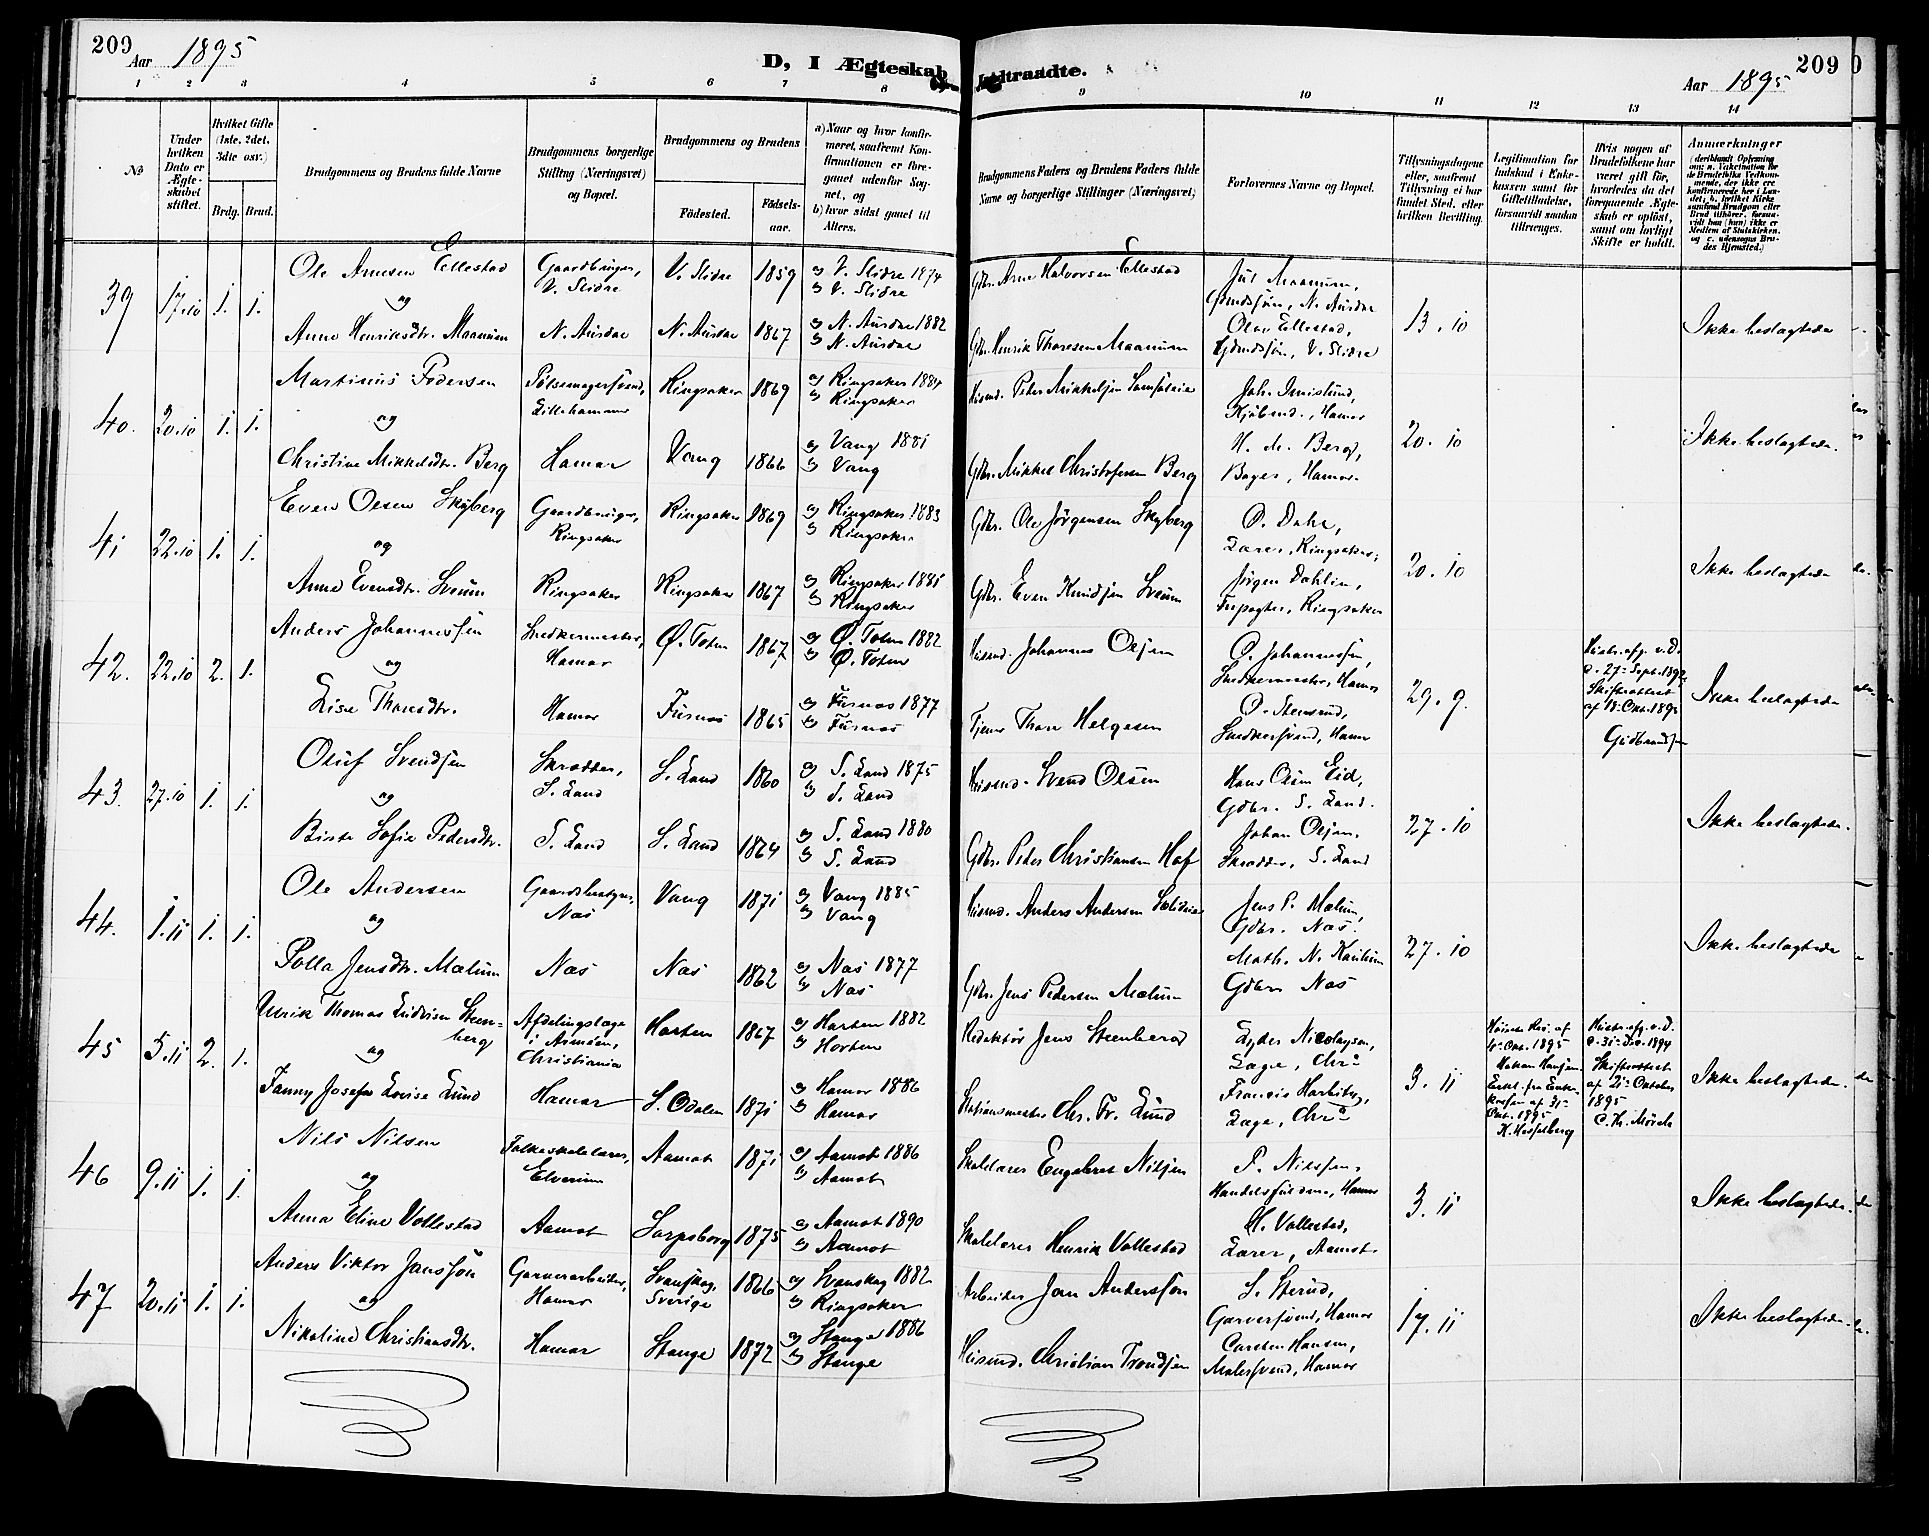 209
Aar 1895
D, I Ægteskab
Indtraadte.
Aar 1895
209
1 2 3 4 5 6 7 8 9 10 11 12 13 14
No
Under hvilken Dato er Ægteskabet stiftet.
Hvilket Gifte (1ste, 2det, 3die osv.)
Brdg. Brud.
Brudgommens og Brudens fulde Navne
Brudgommens borgerlige Stilling (Næringsvei) og Bopæl.
Brudgommens og Brudens
Fødested.
Fødsels-aar.
a) Naar og hvor konfirmeret, saafremt Konfirmationen er foregaaet udenfor Sognet, og
b) hvor sidst gaaet til Alters.
Brudgommens Faders og Brudens Faders fulde Navne og borgerlige Stillinger (Næringsvei)
Forlovernes Navne og Bopæl.
Tillysningsdagene eller, saafremt Tillysning ei har fundet Sted, efter hvilken Bevilling.
Legitimation for Indskud i Enkekassen samt for Giftetilladelse, forsaavidt saadan tiltrænges.
Hvis nogen af Brudefolkene har været gift før, hvorledes da det foregaaende Ægteskab er opløst, samt om lovligt Skifte er holdt.
Anmerkninger
39 17.10 1. 1.
Ole Arnesen Ellestad
og
Anne Henriksdtr. Maanum
Gaardbruger, V. Slidre
N. Aurdal
V. Slidre 1859
N. Aurdal 1867
a) V. Slidre 1874
b) V. Slidre
a) N. Aurdal 1882
b) N. Aurdal
Gbr. Arne Halvorsen Ellestad
Gbr. Henrik Thoresen Maanum
Jul Maanum,
Gaardsøn, N. Aurdal
Olav Ellestad,
Gaardsøn, V. Slidre
13. 10
Ikke beslægtede
40. 20.10 1. 1.
Martinus Pedersen
og
Christine Mikkelsdtr. Berg
Pølsemagersvend, Lillehammer
Hamar
Ringsaker 1869
Vang 1866
a) Ringsaker 1884
b) Ringsaker
a) Vang 1881
b) Vang
Husmd. Peder Mikkelsen
Gbr. Mikkel Christofersen Berg
Joh. Imislund,
Kjøbmd., Hamar
H. M. Berg,
Bager, Hamar
20. 10
Ikke beslægtede.
41 22.10 1. 1.
Even Olsen Skyberg
og
Anne Evensdtr. Sveum
Gaardbruger, Ringsaker
Ringsaker
Ringsaker 1869
Ringsaker 1867
a) Ringsaker 1883
b) Ringsaker
a) Ringsaker 1881
b) Ringsaker
Gbr. Ole Jørgensen Skyberg
Gbr. Even Knudsen Sveum
O. Dahl,
Lærer, Ringsaker,
Jørgen Dahlin,
Forpagter, Ringsaker
20. 10
Ikke beslægtede
42. 22.10 2. 1.
Anders Johannessen
og
Lise Thorsdtr.
Snedkermester, Hamar
Hamar
Ø. Toten 1867
Furnæs 1865
a) Ø. Toten 1882
b) Ø. Toten
a) Furnæs 1877
b) Furnæs
Husmd. Johannes Olsen
Tjener Thore Helgesen
O. Johannessen,
Snedkermester, Hamar
O. Stensrud,
Snedkersvend, Hamar
29. 9.
Hustr. afg. v. D.
d. 27de Sept. 1892
Skifteattest
af 18. Okt. 1892
Gudbrandsen
Ikke beslægtede
43. 27.10 1. 1.
Oluf Svendsen
og
Birte Sofie Pedersdtr.
Skrædder, S. Land
S. Land
S. Land 1860
S. Land 1864
a) S. Land 1875
b) S. Land
a) S. Land 1880
b) S. Land
Husmd. Svend Olsen
Gbr. Peder Christiansen Hof
Hans Olsen Eid,
Gdbr. S. Land.
Johan Olsen,
Skrædder, S. Land
27. 10
Ikke beslægtede.
44. 1.11 1. 1.
Ole Andersen
og
Polla Jensdtr. Mælum
Gaardsbestyrer, Næs
Næs
Vang 1871
Næs 1862
a) Vang 1885
b) Vang
a) Næs 1877
b) Næs
Husmd. Anders Andersen
Gbr. Jens Pedersen Mælum
Jens P. Mælum,
Gdbr. Næs.
Math. N.
Gdbr. Næs
27. 10
Ikke beslægtede
45 5.11 2. 1.
Ulrik Thomas Ludvigsen Steenberg
og
Fanny Josefine Lovise Lund
Afdelingslæge i Armeen, Christiania
Hamar
Horten 1867
S. Odalen 1871
a) Horten 1882
b) Horten
a) Hamar 1886
b) Hamar
Redaktør Jens Steenberg
Stationsmester Chr. Fr. Lund
Lyder Nicolaysen,
Læge, Chra
Francis Harbitz,
Læge, Chra
3. 11
Okt. 1895
Hakon Hansen
31te
Okt. 1895
K. Hesselberg
Hustr. afg. v. D.
d. 31te Dec. 1894
Skifteattest
af 21de Oktober
1895
C. Th. Mørch
Ikke beslægtede.
46 9.11 1. 1.
Nils Nilsen
og
Anna Eline Vollestad
Folkeskolelærer, Elverum
Aamot
Aamot 1871
Sarpsborg 1875
a) Aamot 1886
b) Aamot
a) Aamot 1890
b) Aamot
Skolelærer Engebret Nilsen
Skolelærer Henrik Vollestad
P. Nilssen,
Handelsfuldm., Hamar
H. Vollestad,
Lærer, Aamot
3. 11
Ikke beslægtede.
47 20.11 1. 1.
Anders Viktor Jansson
og
Nikoline Christiansdtr.
Garverarbeider, Hamar
Hamar
Svanskog, Sverige 1866
Stange 1872
a) Svanskog 1882
b) Ringsaker
a) Stange 1886
b) Stange
Arbeider Jan Andersson
Husmd. Christian Trondsen
S. Sterud,
Garversvend, Hamar
Carsten Hansen,
Malersvend, Hamar
17. 11
Ikke beslægtede.